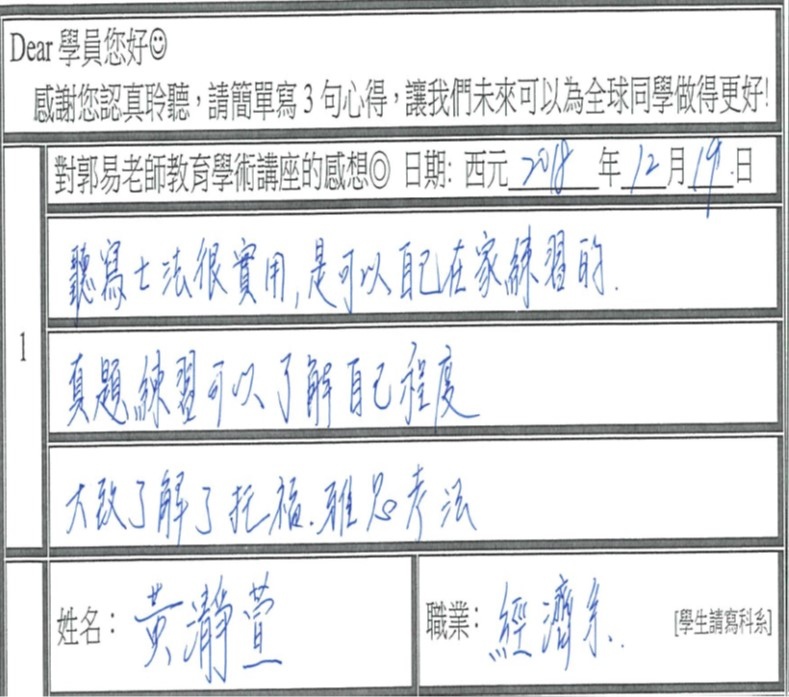 Dear 學員您好☺
感謝您認真聆聽，請簡單寫 3 句心得，讓我們未來可以為全球同學做得更好!
1
對郭易老師教育學術講座的感想◎ 日期: 西元 2018 年 12 月 19 日
聽寫士法很實用,是可以自己在家練習的.
真題練習可以了解自己程度
大致了解了托福.雅思考法
姓名： 黃瀞萱
職業： 經濟系. [學生請寫科系]